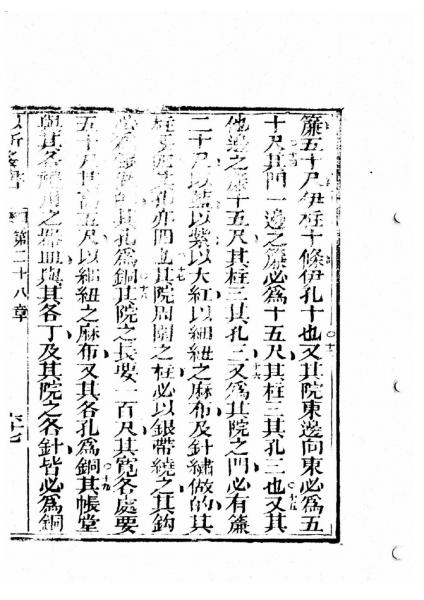 簾五十尺伊柱十條伊孔十也又其院東邊向東必爲五
十尺其門一邊之簾必爲十五尺其柱三其孔三也又其
他邊之簾十五尺其柱三其孔三又爲其院之門必有簾
二十尺以藍以紫以大紅以細紐之麻布及針繡做的其
柱四其孔亦四也其院周圍之柱必以銀帶繞之其鈎
必爲銀的其孔爲銅其院之長要一百尺其寬各處要
五十尺其高五尺以細紐之麻布又其各孔爲銅其帳堂
與其各用之器皿與其各丁及其院之各針皆必爲銅
第二十八章